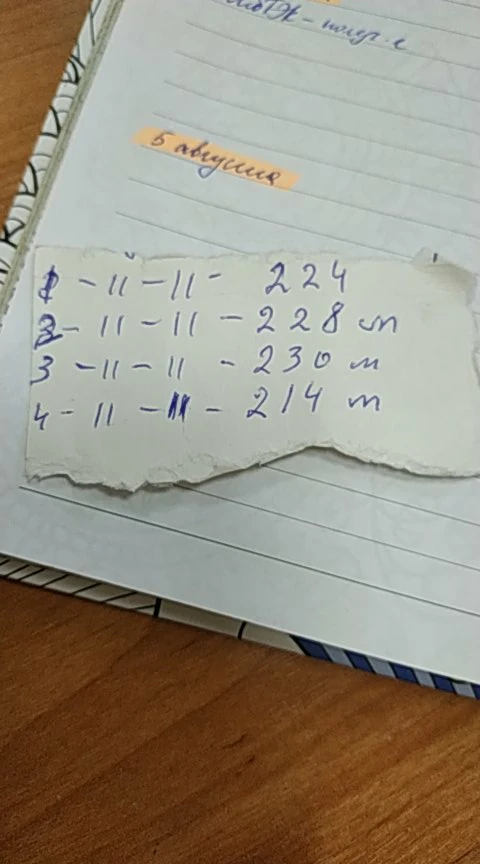 5 августа
1 - 11 - 11 - 224
2 - 11 - 11 - 228 m
3 - 11 - 11 - 230 м
4 - 11 - 11 - 214 m